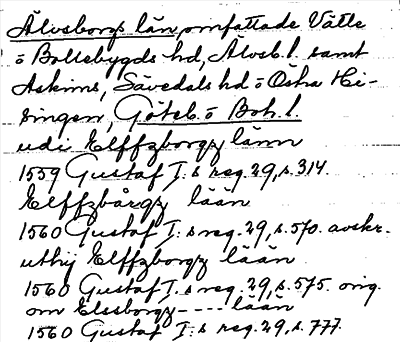 Älvsborgs län, omfattade Vätle
o Bollebygds hd, Älvsb. l. samt
Askims, Sävedals hd o Östra Hi-
singen, Göteb. o Boh. l.
udi Elffzborgz länn
1559 Gustaf I:s reg. 29, s. 314.
Elffzbårgz lään
1560 Gustaf I:s reg. 29, s. 570. avskr.
uthij Elffzborgz lään
1560 Gustaf I.s reg. 29, s. 575. orig.
om Elssborgz - - - - lään
1560 Gustaf I:s reg. 29, s. 777.